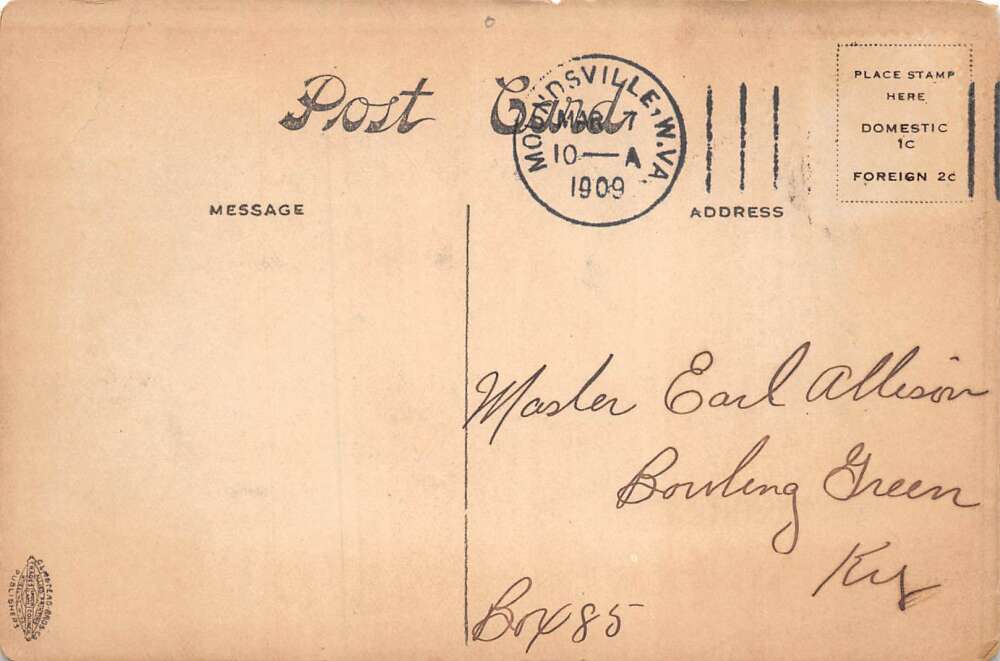 Post Card
MOUNDSVILLE, W.VA.
MAR 7
10—A
1909
PLACE STAMP
HERE
DOMESTIC
1c
FOREIGN 2c
MESSAGE
ADDRESS
Master Earl Allison
Bowling Green
Ky
Box 85